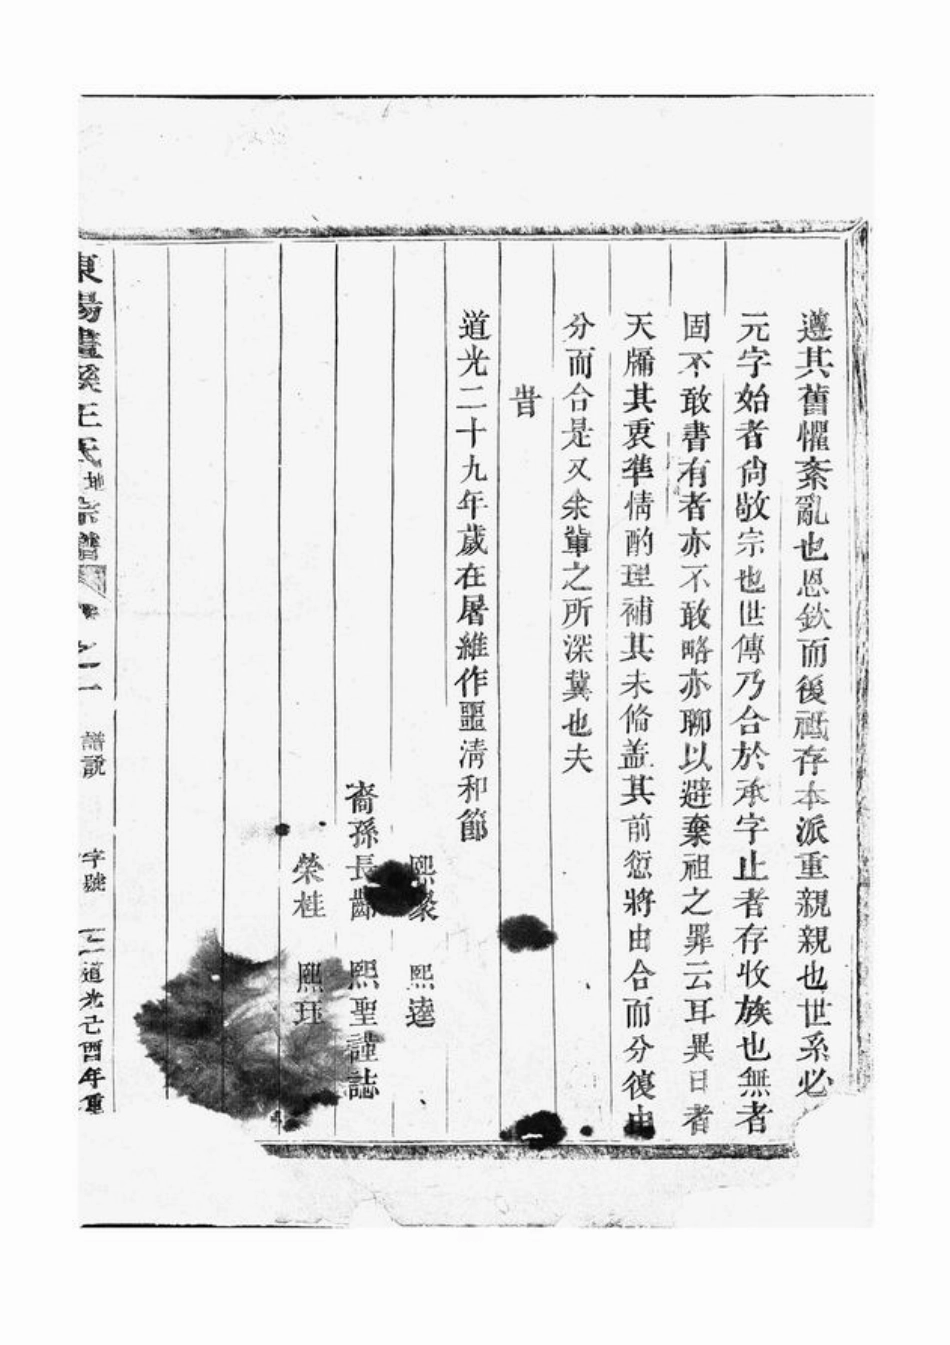 遵其舊懼紊亂也恩欽而後祗存本派重親親也世系必
元字始者尙敬宗也世傳乃合於承字止者存收族也無者
固不敢書有者亦不敢略亦聊以避棄祖之罪云耳異日者
天牖其衷準情酌理補其未偹盖其前愆將由合而分復由
分而合是又余輩之所深冀也夫
旹
道光二十九年歲在屠維作噩淸和節
熙 熙逵
裔孫長齡 熙聖謹誌
榮桂 熙珏
東陽畫溪王氏地宗譜 卷之一 譜說 字號 一 道光己酉年重